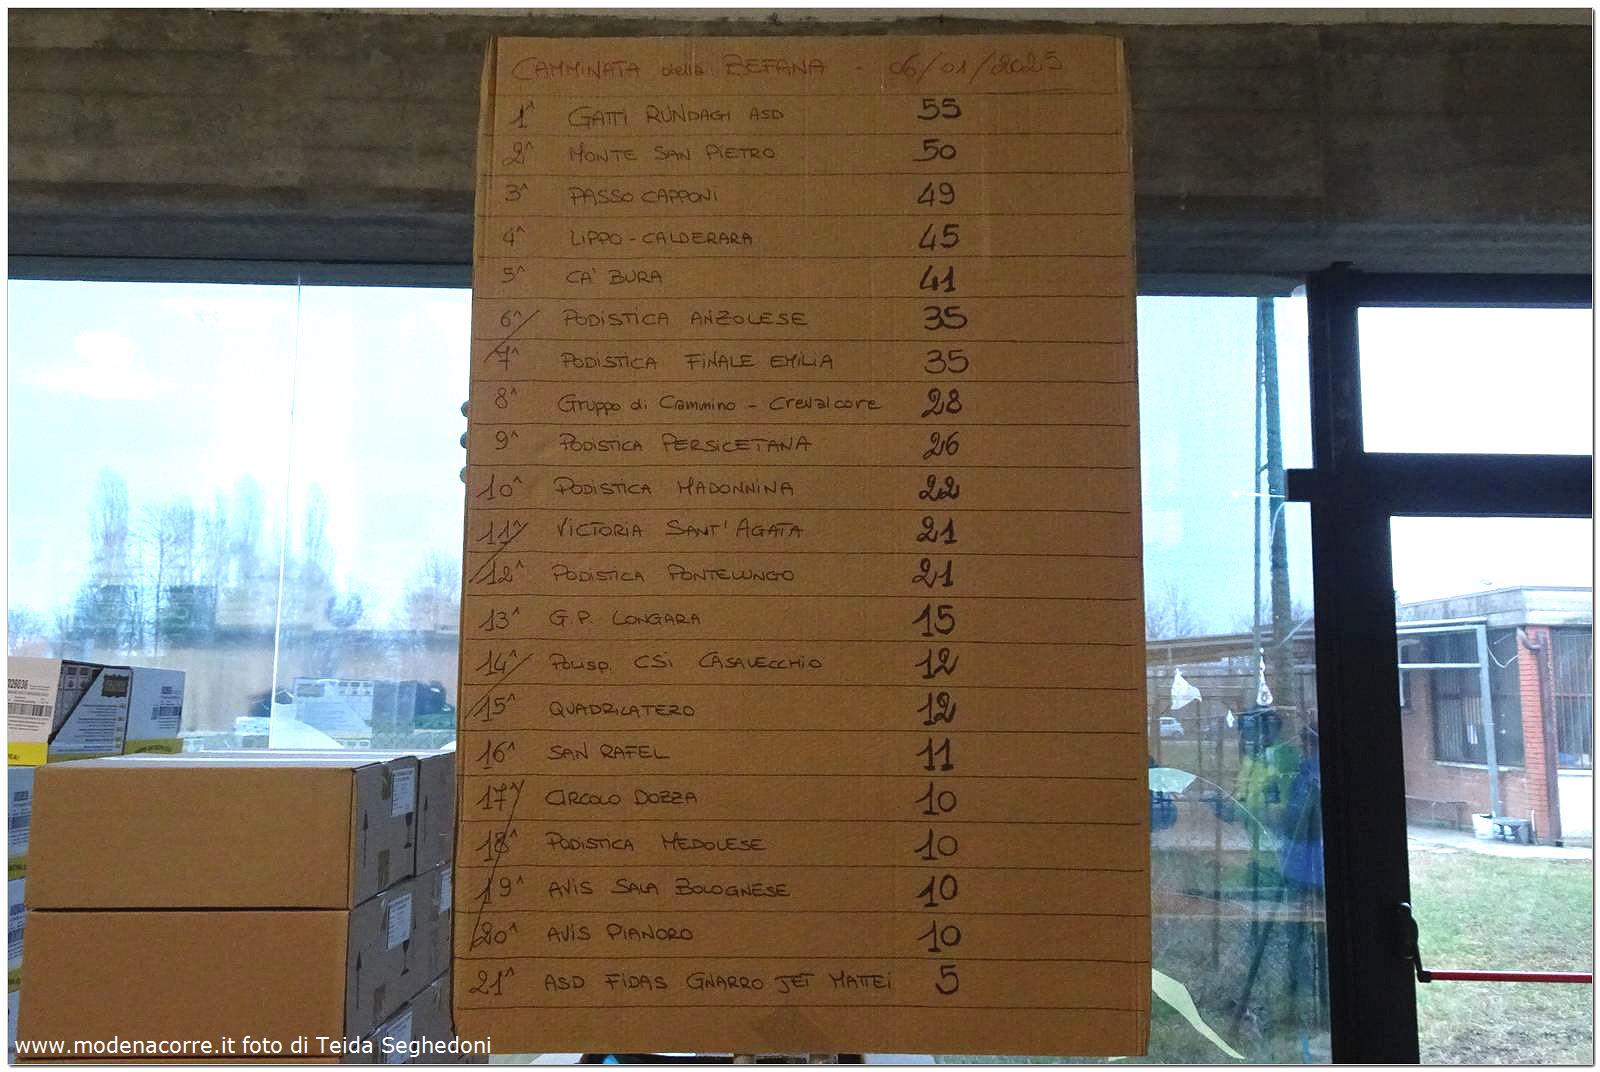 CAMMINATA della BEFANA - 06/01/2025
1^ GATTI RUNDAGI ASD 55
2^ MONTE SAN PIETRO 50
3^ PASSO CAPPONI 49
4^ LIPPO - CALDERARA 45
5^ CA' BURA 41
6^ PODISTICA ANZOLESE 35
7^ PODISTICA FINALE EMILIA 35
8^ Gruppo di Cammino - Crevalcore 28
9^ PODISTICA PERSICETANA 26
10^ PODISTICA MADONNINA 22
11^ VICTORIA SANT'AGATA 21
12^ PODISTICA PONTELUNGO 21
13^ G.P. LONGARA 15
14^ POLISP. CSI CASALECCHIO 12
15^ QUADRILATERO 12
16^ SAN RAFEL 11
17^ CIRCOLO DOZZA 10
18^ PODISTICA MEDOLESE 10
19^ AVIS SALA BOLOGNESE 10
20^ AVIS PIANORO 10
21^ ASD FIDAS GNARRO JET MATTEI 5
www.modenacorre.it foto di Teida Seghedoni